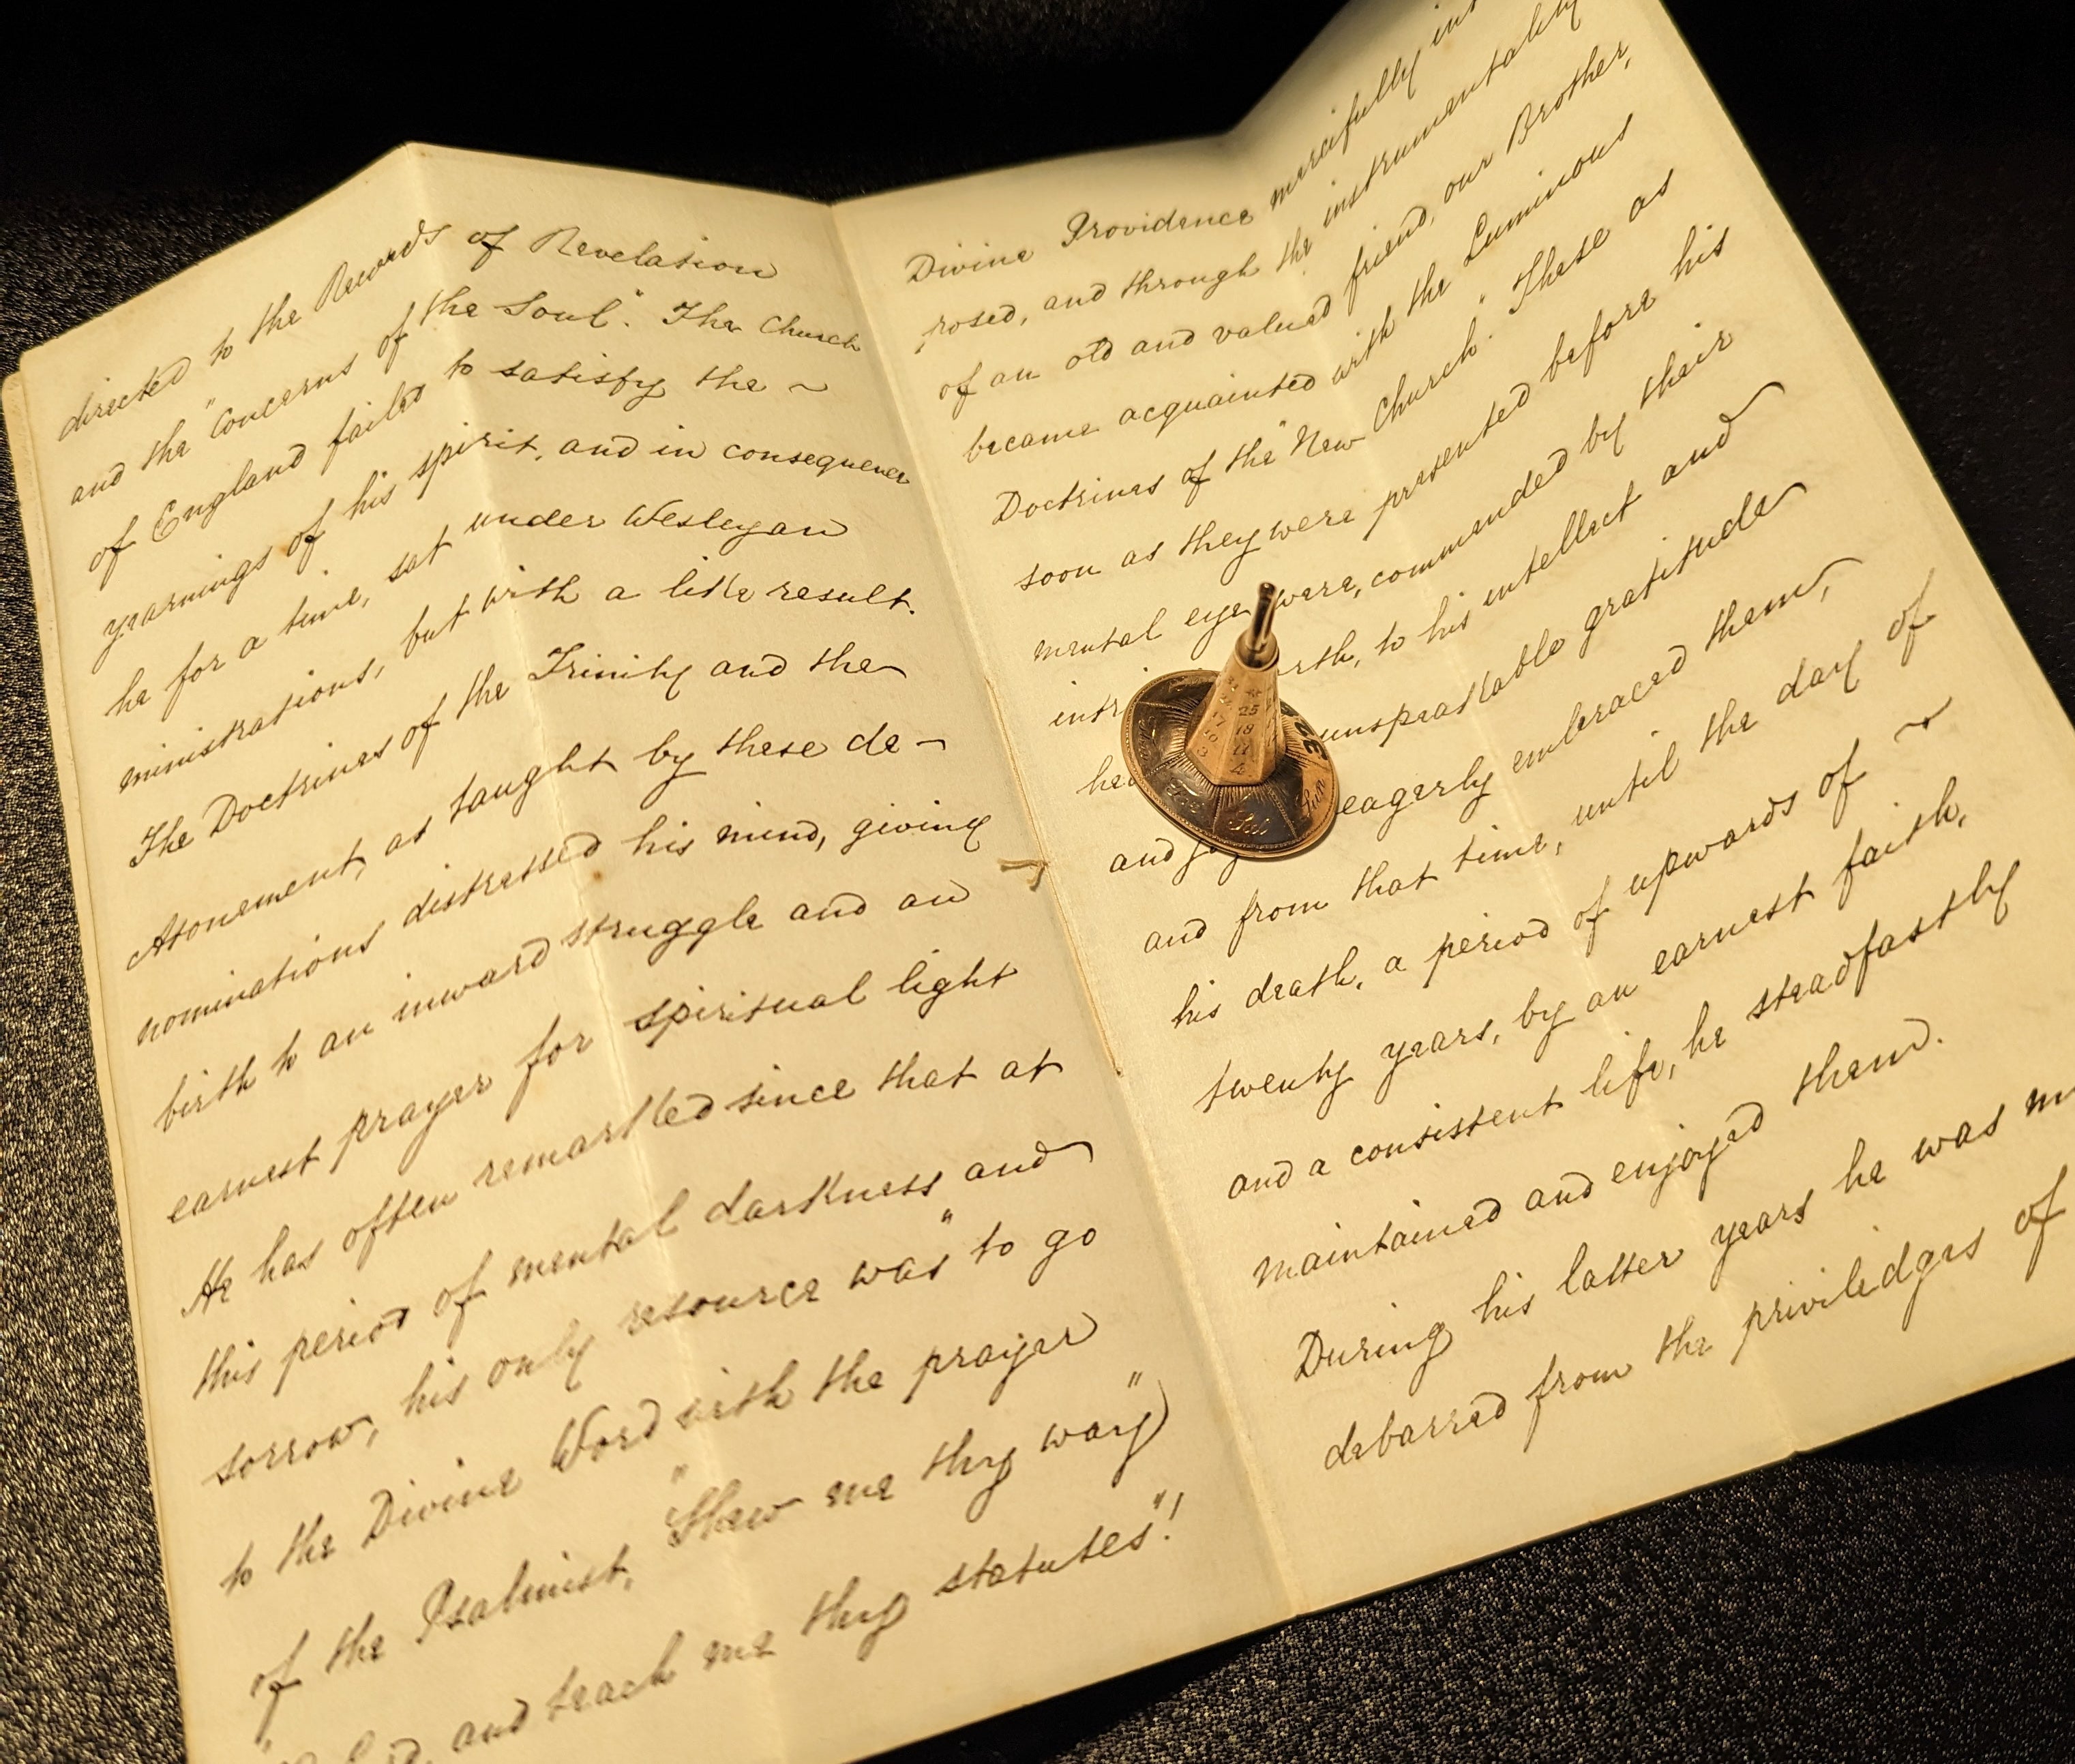 directed to the Records of Revelation
and the "concerns of the Soul". The Church
of England failed to satisfy the ~
yearnings of his spirit, and in consequence
he for a time, sat under Wesleyan
ministrations, but with a like result.
The Doctrines of the Trinity and the
Atonement, as taught by these de-
nominations distressed his mind, giving
birth to an inward struggle and an
earnest prayer for spiritual light
He has often remarked since that at
this period of mental darkness and
sorrow, his only resource was "to go
to the Divine Word with the prayer
of the Psalmist, "Shew me thy way"
and teach me thy statutes"!
Divine Providence mercifully
posed, and through the instrumentality
of an old and valued friend, our Brother,
became acquainted with the Luminous
Doctrines of the "New Church." These as
soon as they were presented before his
mental eye were, commended by their
to his intellect and
unspeakable gratitude
and eagerly embraced them,
and from that time, until the day of
his death, a period of upwards of ~
twenty years, by an earnest faith,
and a consistent life, he steadfastly
maintained and enjoyed them.
During his latter years he was
debarred from the priviledges of
25
18
11
4
Sat
Sun